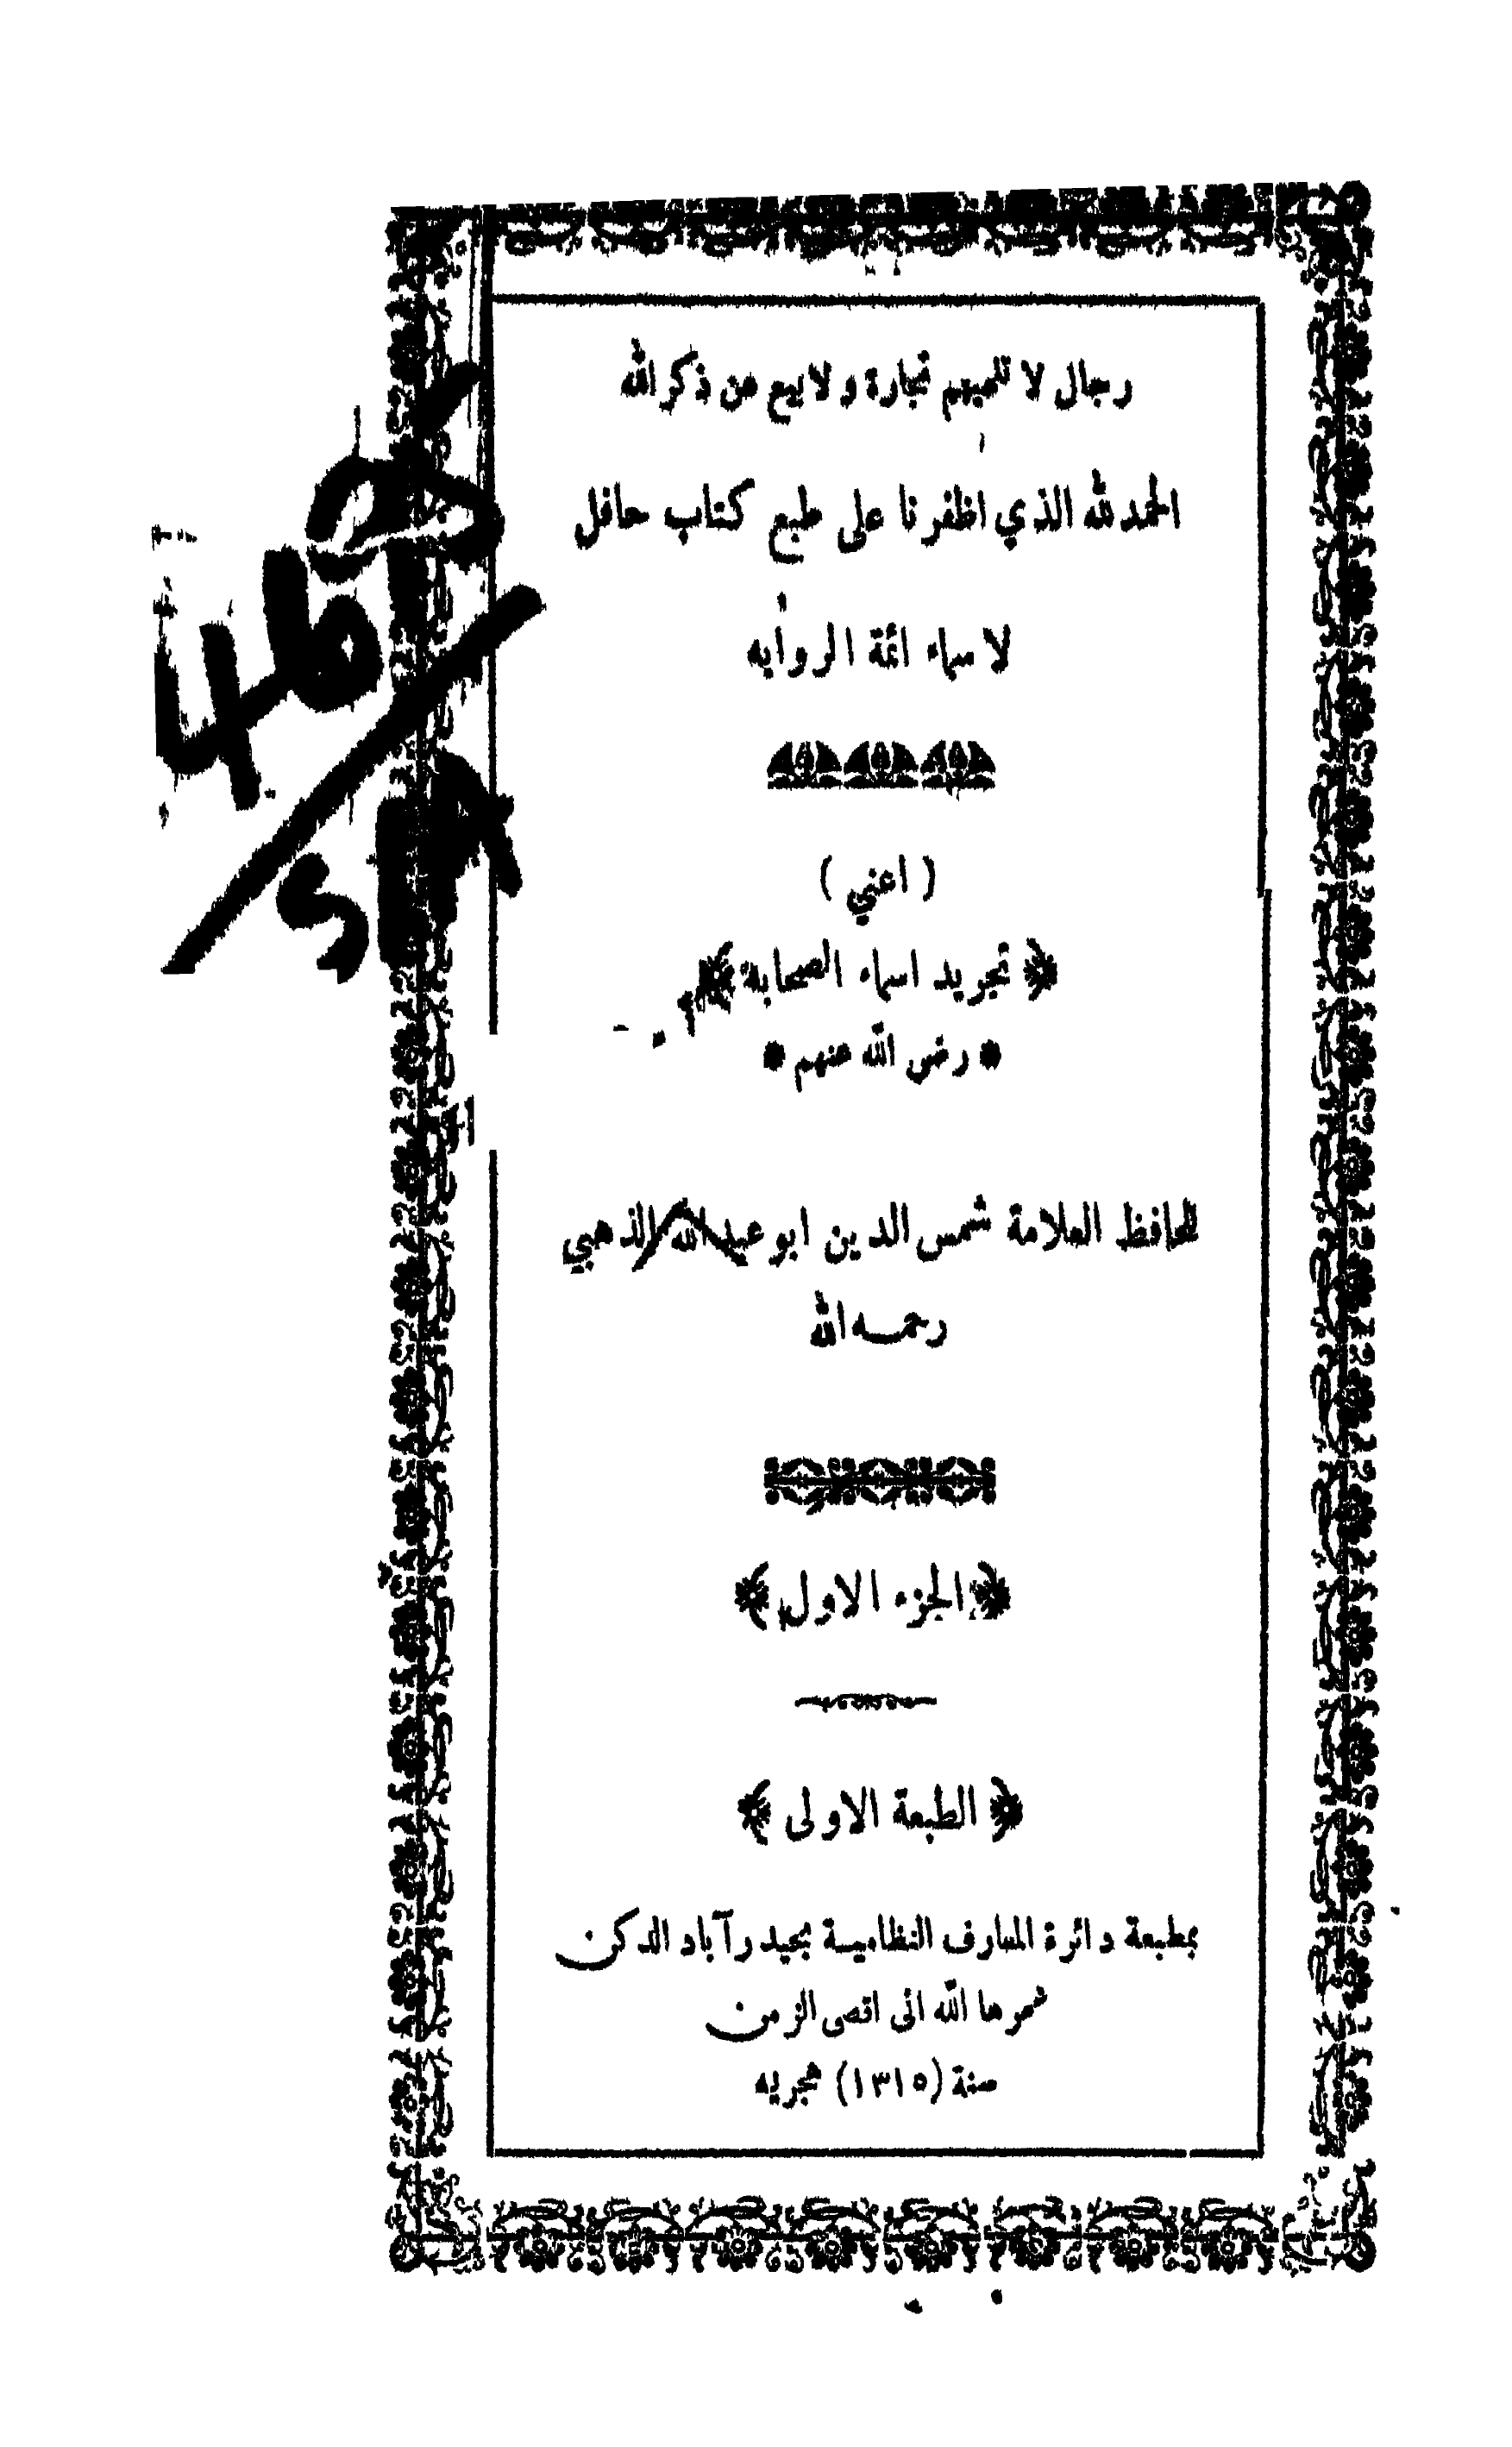 رجال لا تلهيهم تجارة ولا بيع عن ذكر الله
الحمد لله الذي اظفرنا على طبع كتاب حافل
لاسماء ائمة الروايه
( اعني )
﴿ تجريد اسماء الصحابة ﴾
* رضي الله عنهم *
للحافظ العلامة شمس الدين ابو عبد الله الذهبي
رحمه الله
﴿ الجزء الاول ﴾
﴿ الطبعة الاولى ﴾
بمطبعة دائرة المعارف النظامية بحيدرآباد الدكن
عمرها الله الى اقصى الزمن
سنة (١٣١٥) هجريه